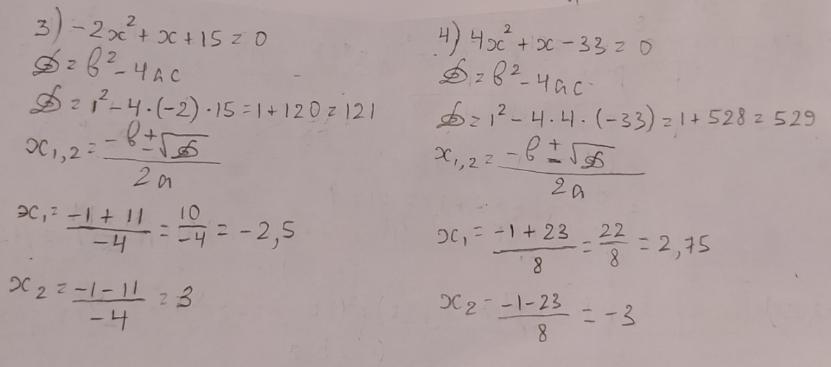 3) -2x² + x + 15 = 0
D = b² - 4ac
D = 1² - 4 · (-2) · 15 = 1 + 120 = 121
x₁,₂ = (-b ± √D) / 2a
x₁ = (-1 + 11) / -4 = 10 / -4 = -2,5
x₂ = (-1 - 11) / -4 = 3
4) 4x² + x - 33 = 0
D = b² - 4ac
D = 1² - 4 · 4 · (-33) = 1 + 528 = 529
x₁,₂ = (-b ± √D) / 2a
x₁ = (-1 + 23) / 8 = 22 / 8 = 2,75
x₂ = (-1 - 23) / 8 = -3